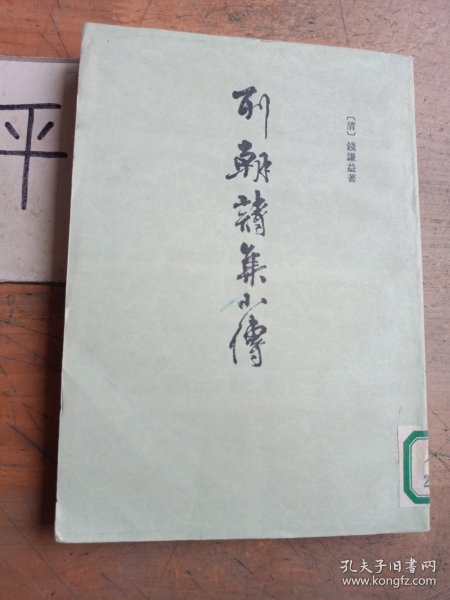 平
列朝詩集小傳
〔清〕錢謙益著
2
孔夫子旧书网
www.kongfz.com